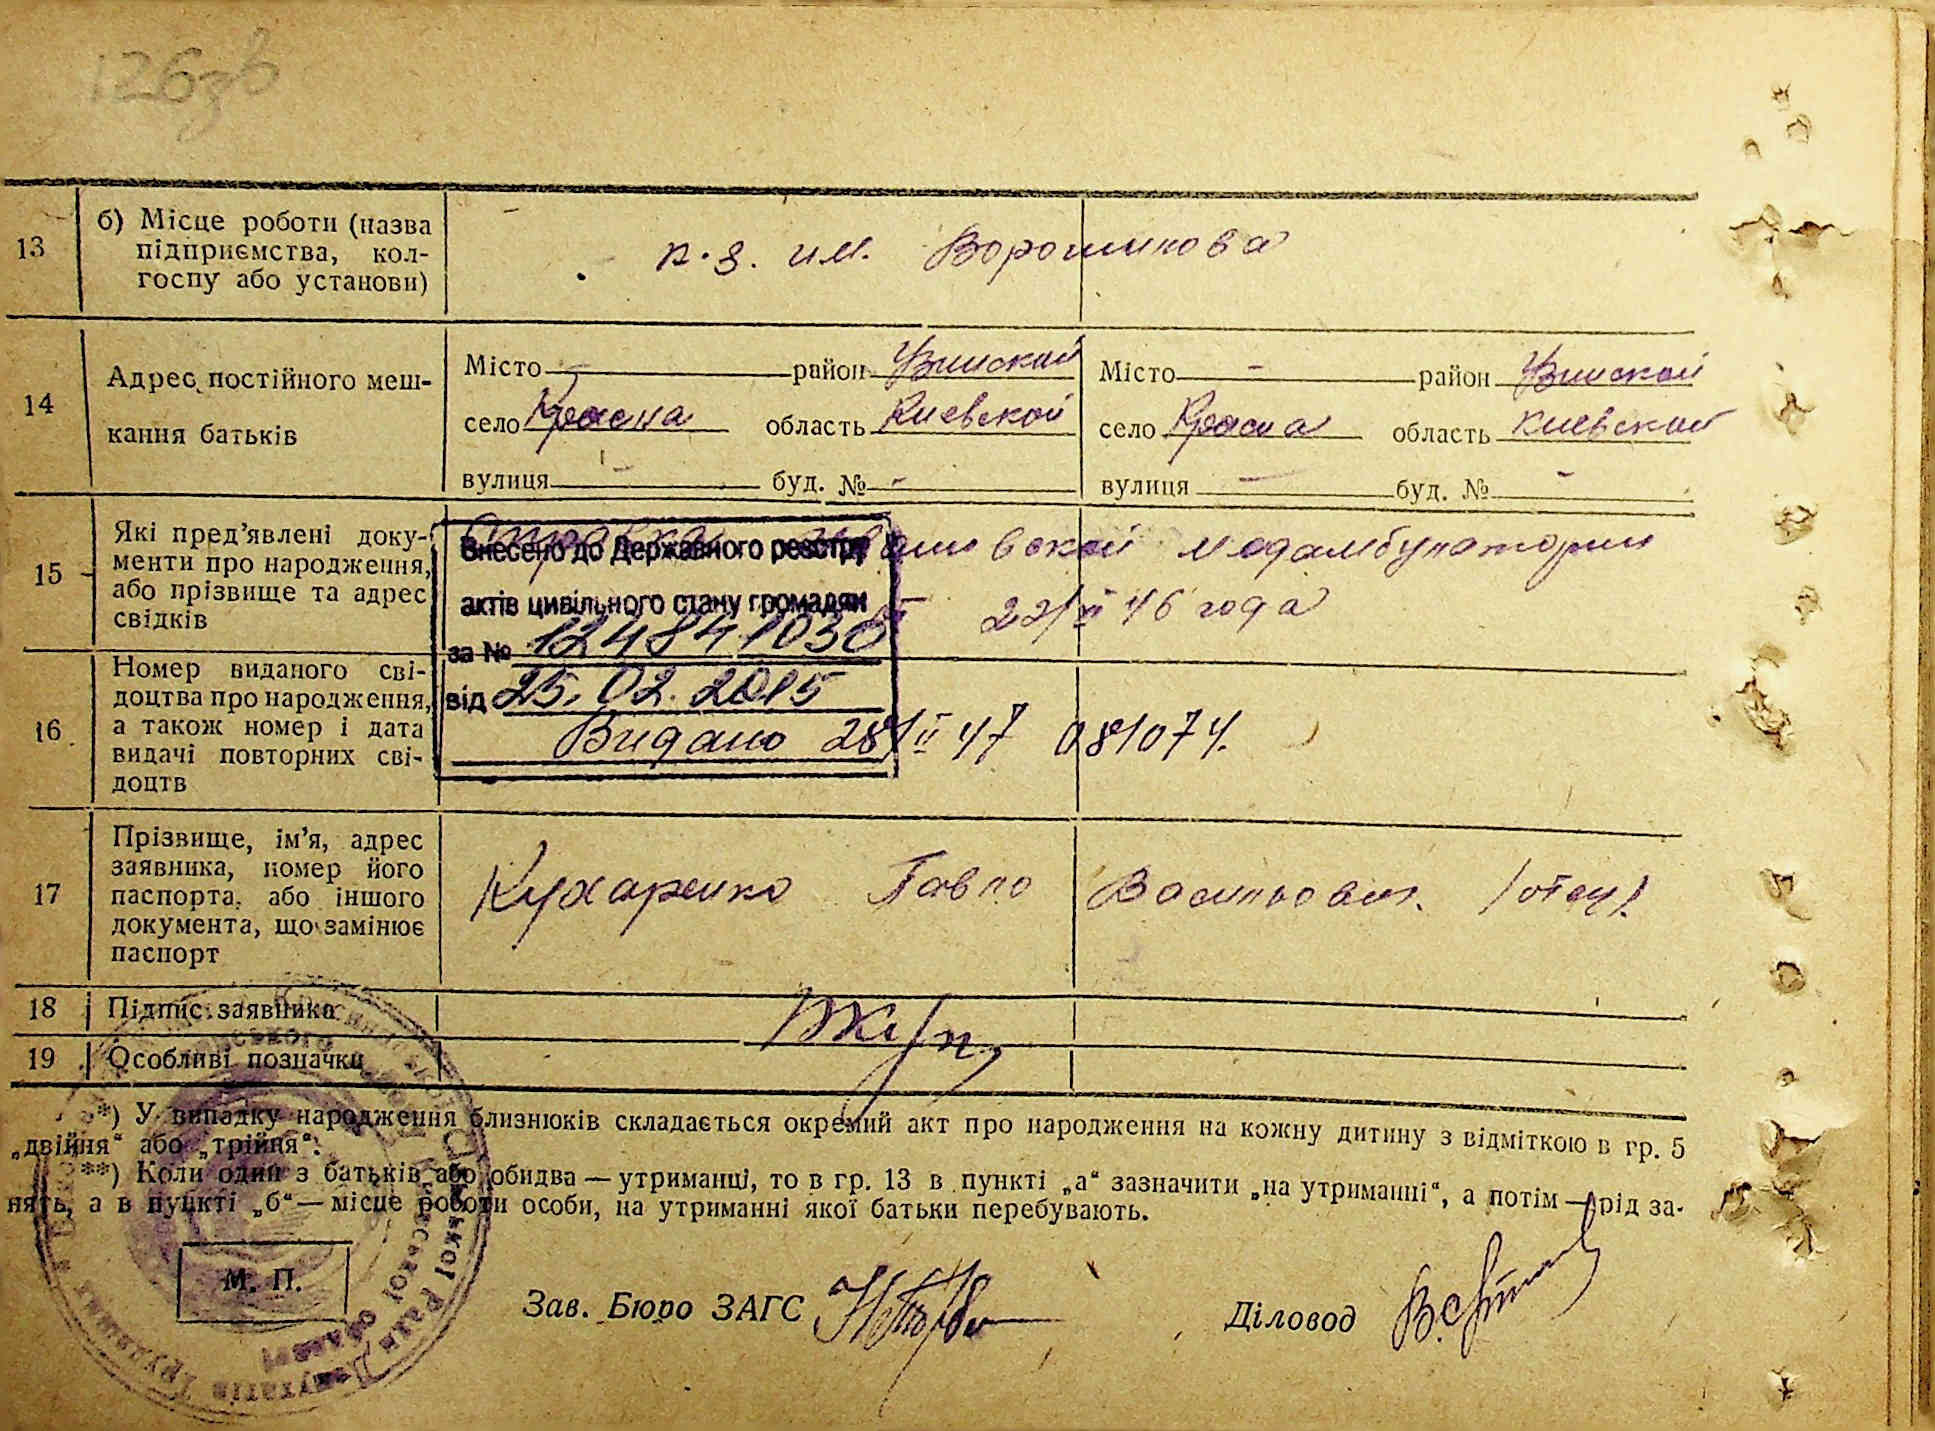 126зв
13
б) Місце роботи (назва
підприємства, кол-
госпу або установи)
к.з. им. Ворошилова
14
Адрес постійного меш-
кання батьків
Місто - район Узинский
село Красна область Киевской
вулиця - буд. № -
Місто - район Узинский
село Красна область Киевской
вулиця - буд. № -
15
Які пред’явлені доку-
менти про народження,
або прізвище та адрес
свідків
Справка медамбулатории
22/II 46 года
Внесено до Державного реєстру
актів цивільного стану громадян
за № 124841030
від 25.02.2015
16
Номер виданого сві-
доцтва про народження,
а також номер і дата
видачі повторних сві-
доцтв
Видано 28/II 47 081074.
17
Прізвище, ім’я, адрес
заявника, номер його
паспорта, або іншого
документа, що замінює
паспорт
Кухаренко Павло Васильович. /отец/.
18 Підпис заявника
19 Особливі позначки
*) У випадку народження близнюків складається окремий акт про народження на кожну дитину з відміткою в гр. 5
„двійня“ або „трійня“.
**) Коли один з батьків або обидва — утриманці, то в гр. 13 в пункті „а“ зазначити „на утриманні“, а потім — рід за-
нять, а в пункті „б“ — місце роботи особи, на утриманні якої батьки перебувають.
М. П.
Зав. Бюро ЗАГС
Діловод